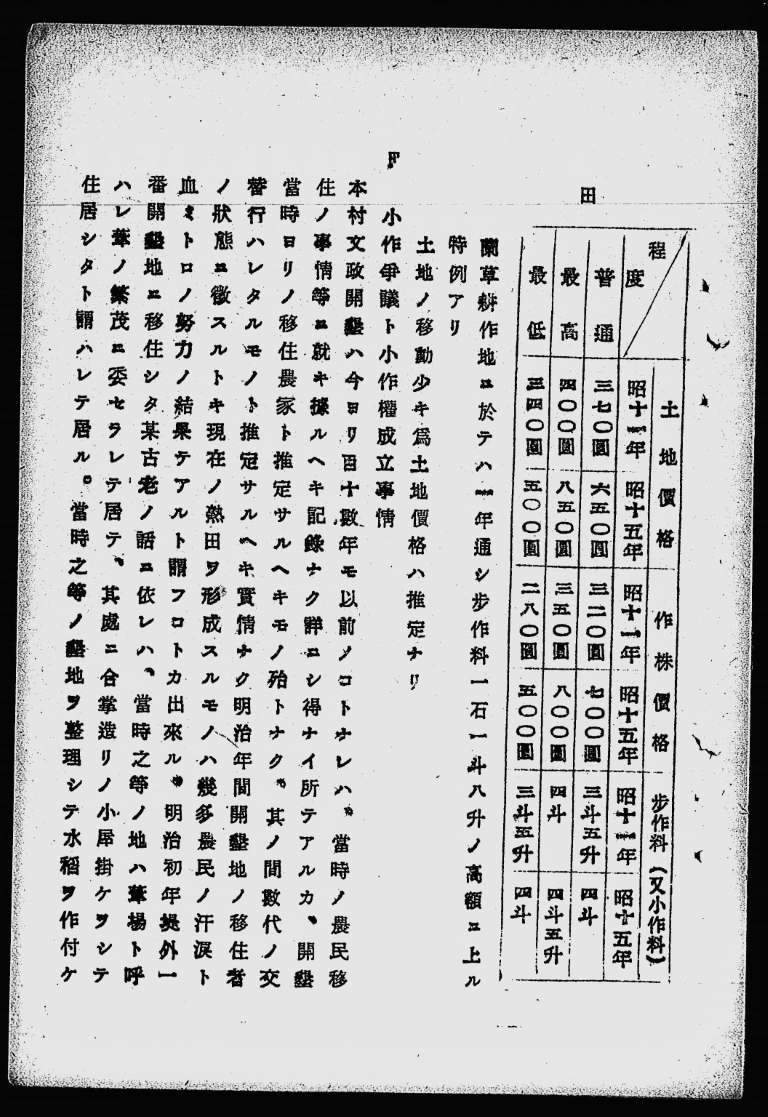 田
程度
土地價格
作株價格
步作料(又小作料)
昭十一年
昭十五年
昭十一年
昭十五年
昭十一年
昭十五年
普通
三七〇圓
六五〇圓
三二〇圓
七〇〇圓
三斗五升
四斗
最高
四〇〇圓
八五〇圓
三五〇圓
八〇〇圓
四斗
四斗五升
最低
三四〇圓
五〇〇圓
二八〇圓
五〇〇圓
三斗五升
四斗
藺草耕作地ニ於テハ一年通シ步作料一石一斗八升ノ高額ニ上ル
特例アリ
土地ノ移動少キ爲土地價格ハ推定ナリ
F 小作爭議ト小作權成立事情
本村文政開墾ハ今ヨリ百十數年モ以前ノコトナレハ、當時ノ農民移
住ノ事情等ニ就キ據ルヘキ記錄ナク詳ニシ得ナイ所テアルカ、開墾
當時ヨリノ移住農家ト推定サルヘキモノ殆トナク、其ノ間數代ノ交
替行ハレタルモノト推定サルヘキ實情ナク明治年間開墾地ノ移住者
ノ狀態ニ徵スルトキ現在ノ熟田ヲ形成スルモノハ幾多農民ノ汗淚ト
血ミトロノ努力ノ結果テアルト謂フコトカ出來ル。明治初年堤外一
番開墾地ニ移住シタ某古老ノ話ニ依レハ、當時之等ノ地ハ葦場ト呼
ハレ葦ノ繁茂ニ委セラレテ居テ、其處ニ合掌造リノ小屋掛ケヲシテ
住居シタト謂ハレテ居ル。當時之等ノ墾地ヲ整理シテ水稻ヲ作付ケ